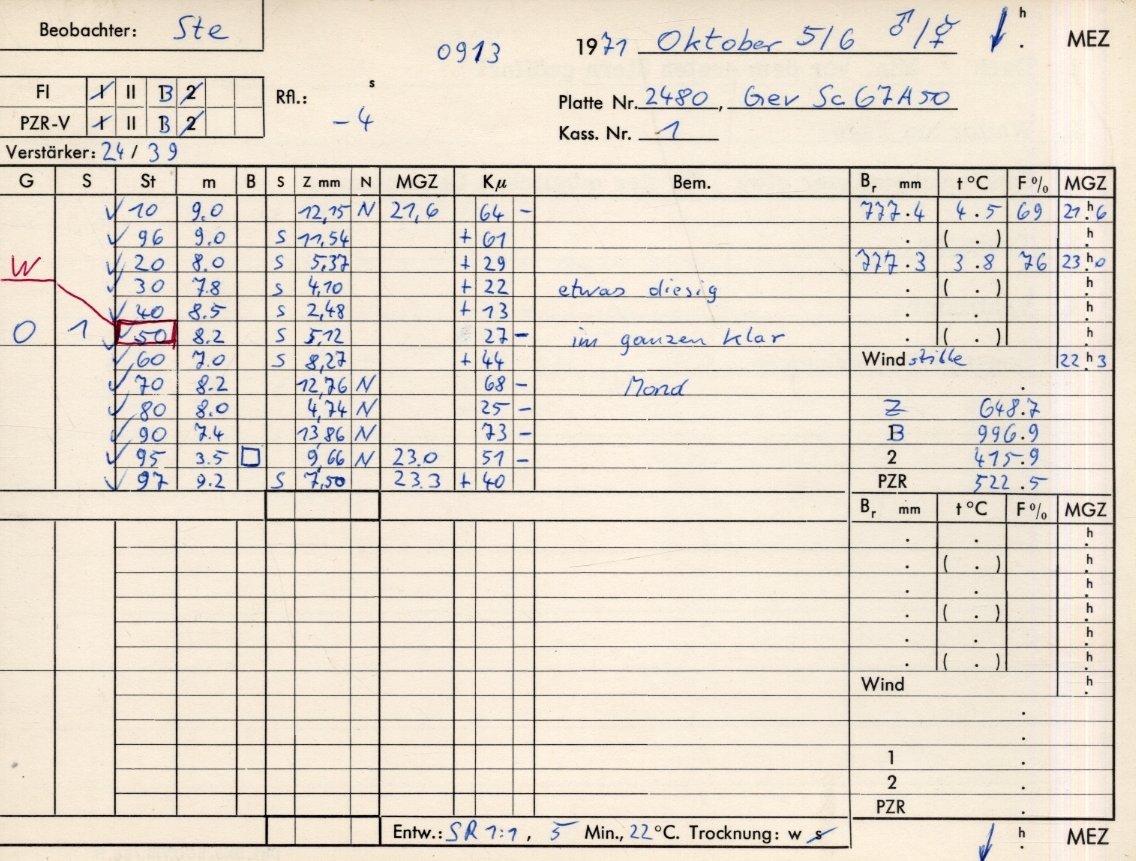 Beobachter: Ste
0913
1971 Oktober 5/6 ♂/♀ h . MEZ
FI I II B 2
PZR-V I II B 2
Rfl.: s -4
Platte Nr. 2480, Gev Sc 67A50
Kass. Nr. 1
Verstärker: 24 / 39
G S St m B S Z mm N MGZ Kμ Bem. Br mm t °C F% MGZ
✓ 10 9.0 12,15 N 21,6 64 - 777.4 4.5 69 21h.6
✓ 96 9.0 S 11,54 + 61 . ( . ) h.
✓ 20 8.0 S 5,37 + 29 777.3 3.8 76 23h.0
W ✓ 30 7.8 S 4,10 + 22 etwas diesig . ( . ) h.
✓ 40 8.5 S 2,48 + 13 . . h.
0 1 ✓ 50 8.2 S 5,12 27 - im ganzen klar . ( . ) h.
✓ 60 7.0 S 8,27 + 44 Wind stille 22h3
✓ 70 8.2 12,76 N 68 - Mond .
✓ 80 8.0 4,74 N 25 - Z 648.7
✓ 90 7.4 13,86 N 73 - B 996.9
✓ 95 3.5 □ 9,66 N 23.0 51 - 2 415.9
✓ 97 9.2 S 7,50 23.3 + 40 PZR 522.5
Br mm t °C F% MGZ
. . h.
. ( . ) h.
. . h.
. ( . ) h.
. . h.
. ( . ) h.
Wind h.
.
.
1 .
2 .
PZR .
Entw.: SR 1:1, 5 Min., 22 °C. Trocknung: w s h . MEZ